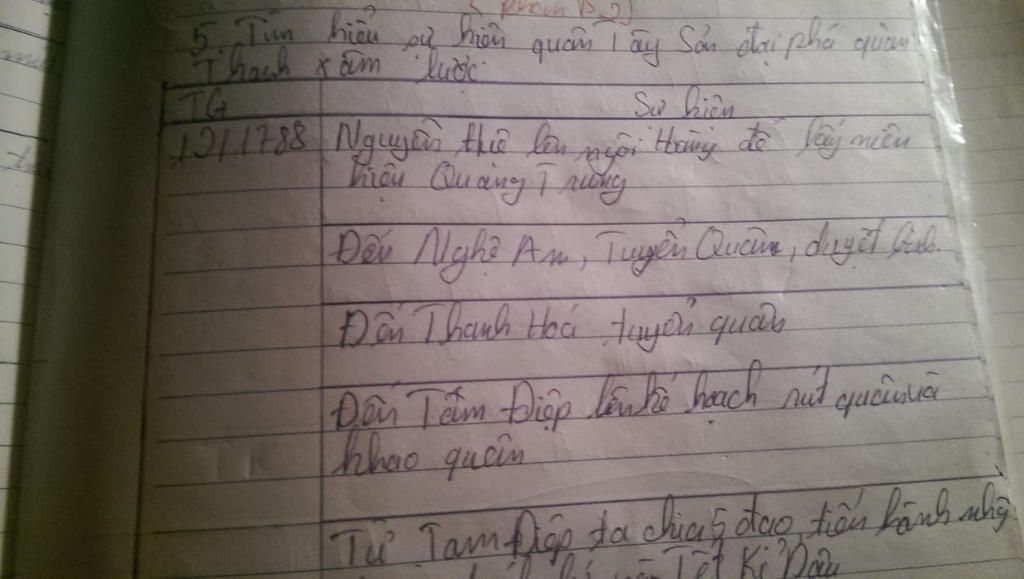 ( phần B 2)
5. Tìm hiểu sự kiện quân Tây Sơn đại phá quân
Thanh xâm lược
TG
Sự kiện
1788 Nguyễn Huệ lên ngôi Hoàng đế lấy niên
hiệu Quang Trung
Đến Nghệ An, Tuyển Quân, duyệt binh.
Đến Thanh Hoá tuyển quân
Đến Tam Điệp lên kế hoạch rút quân và
khao quân
Từ Tam Điệp ta chia 5 đạo tiến
Tết Kỉ Dậu